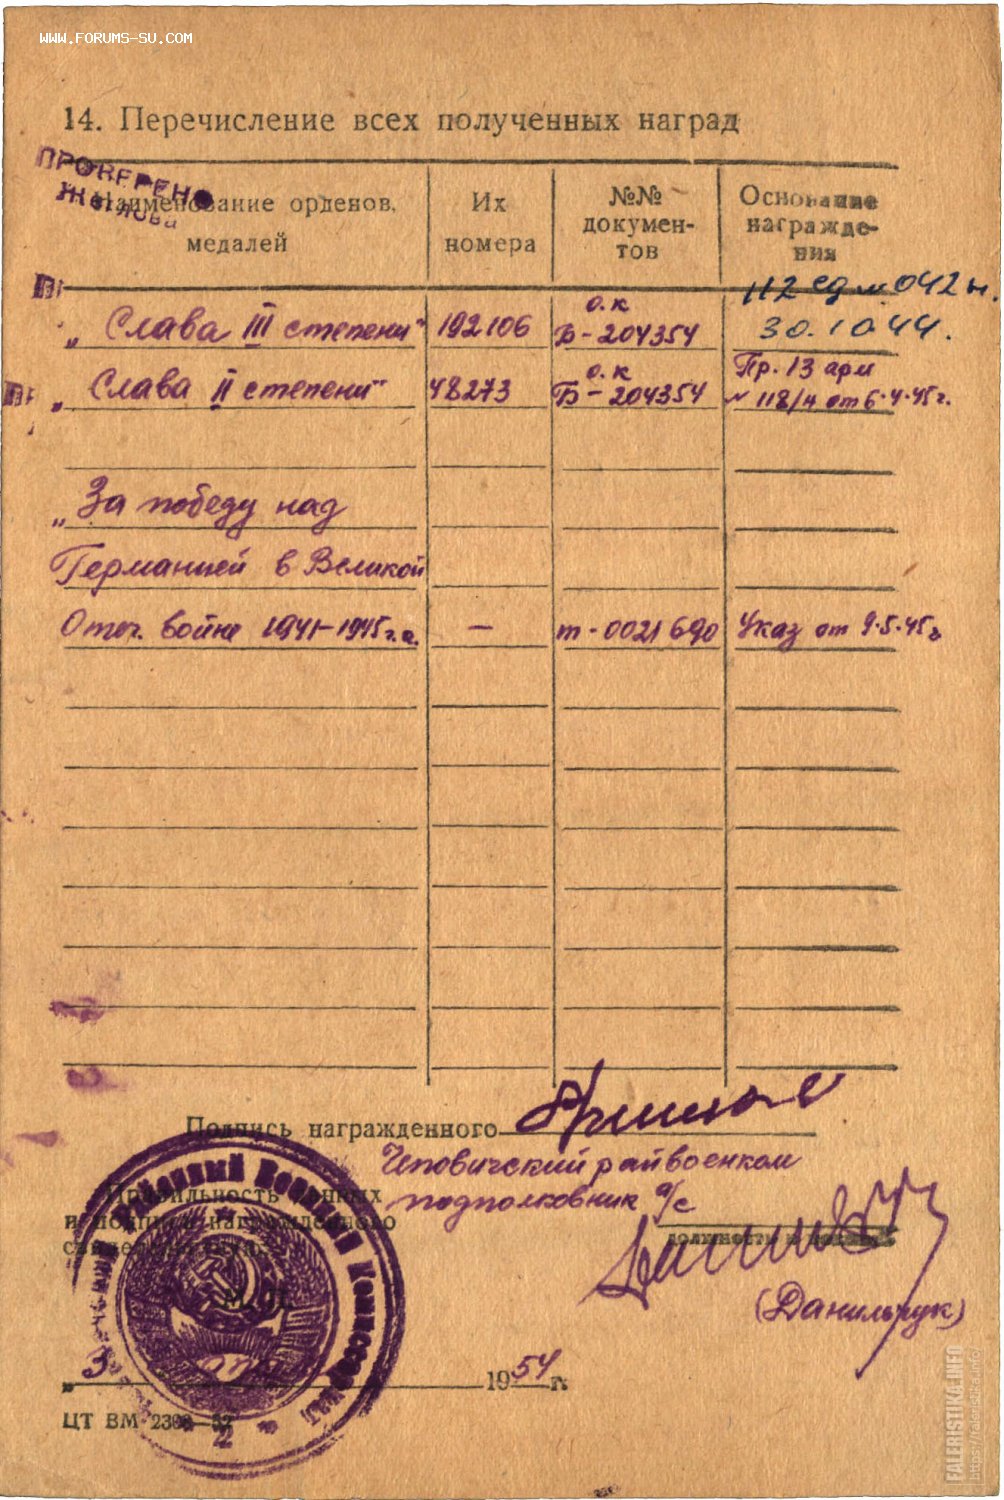 WWW.FORUMS-SU.COM
14. Перечисление всех полученных наград
ПРОВЕРЕНО
Наименование орденов, медалей
Их номера
№№ документов
Основание награждения
112 сд № 042 н.
„Слава III степени" 192106 о.к Б-204354 30.10.44.
„Слава II степени" 48273 о.к Б-204354 Пр. 13 арм № 118/н от 6.4.45г.
„За победу над
Германией в Великой
Отеч. войне 1941-1945г.г. — т-0021690 Указ от 9.5.45г
Подпись награжденного
Чповичский райвоенком
Правильность данных
подполковник а/с
и подписи награжденного
свидетельствую.
должность и
М. П.
(Данильчук)
Районный Военный Комиссариат
3
1954 г.
ЦТ ВМ
FALERISTIKA.INFO
https://faleristika.info/